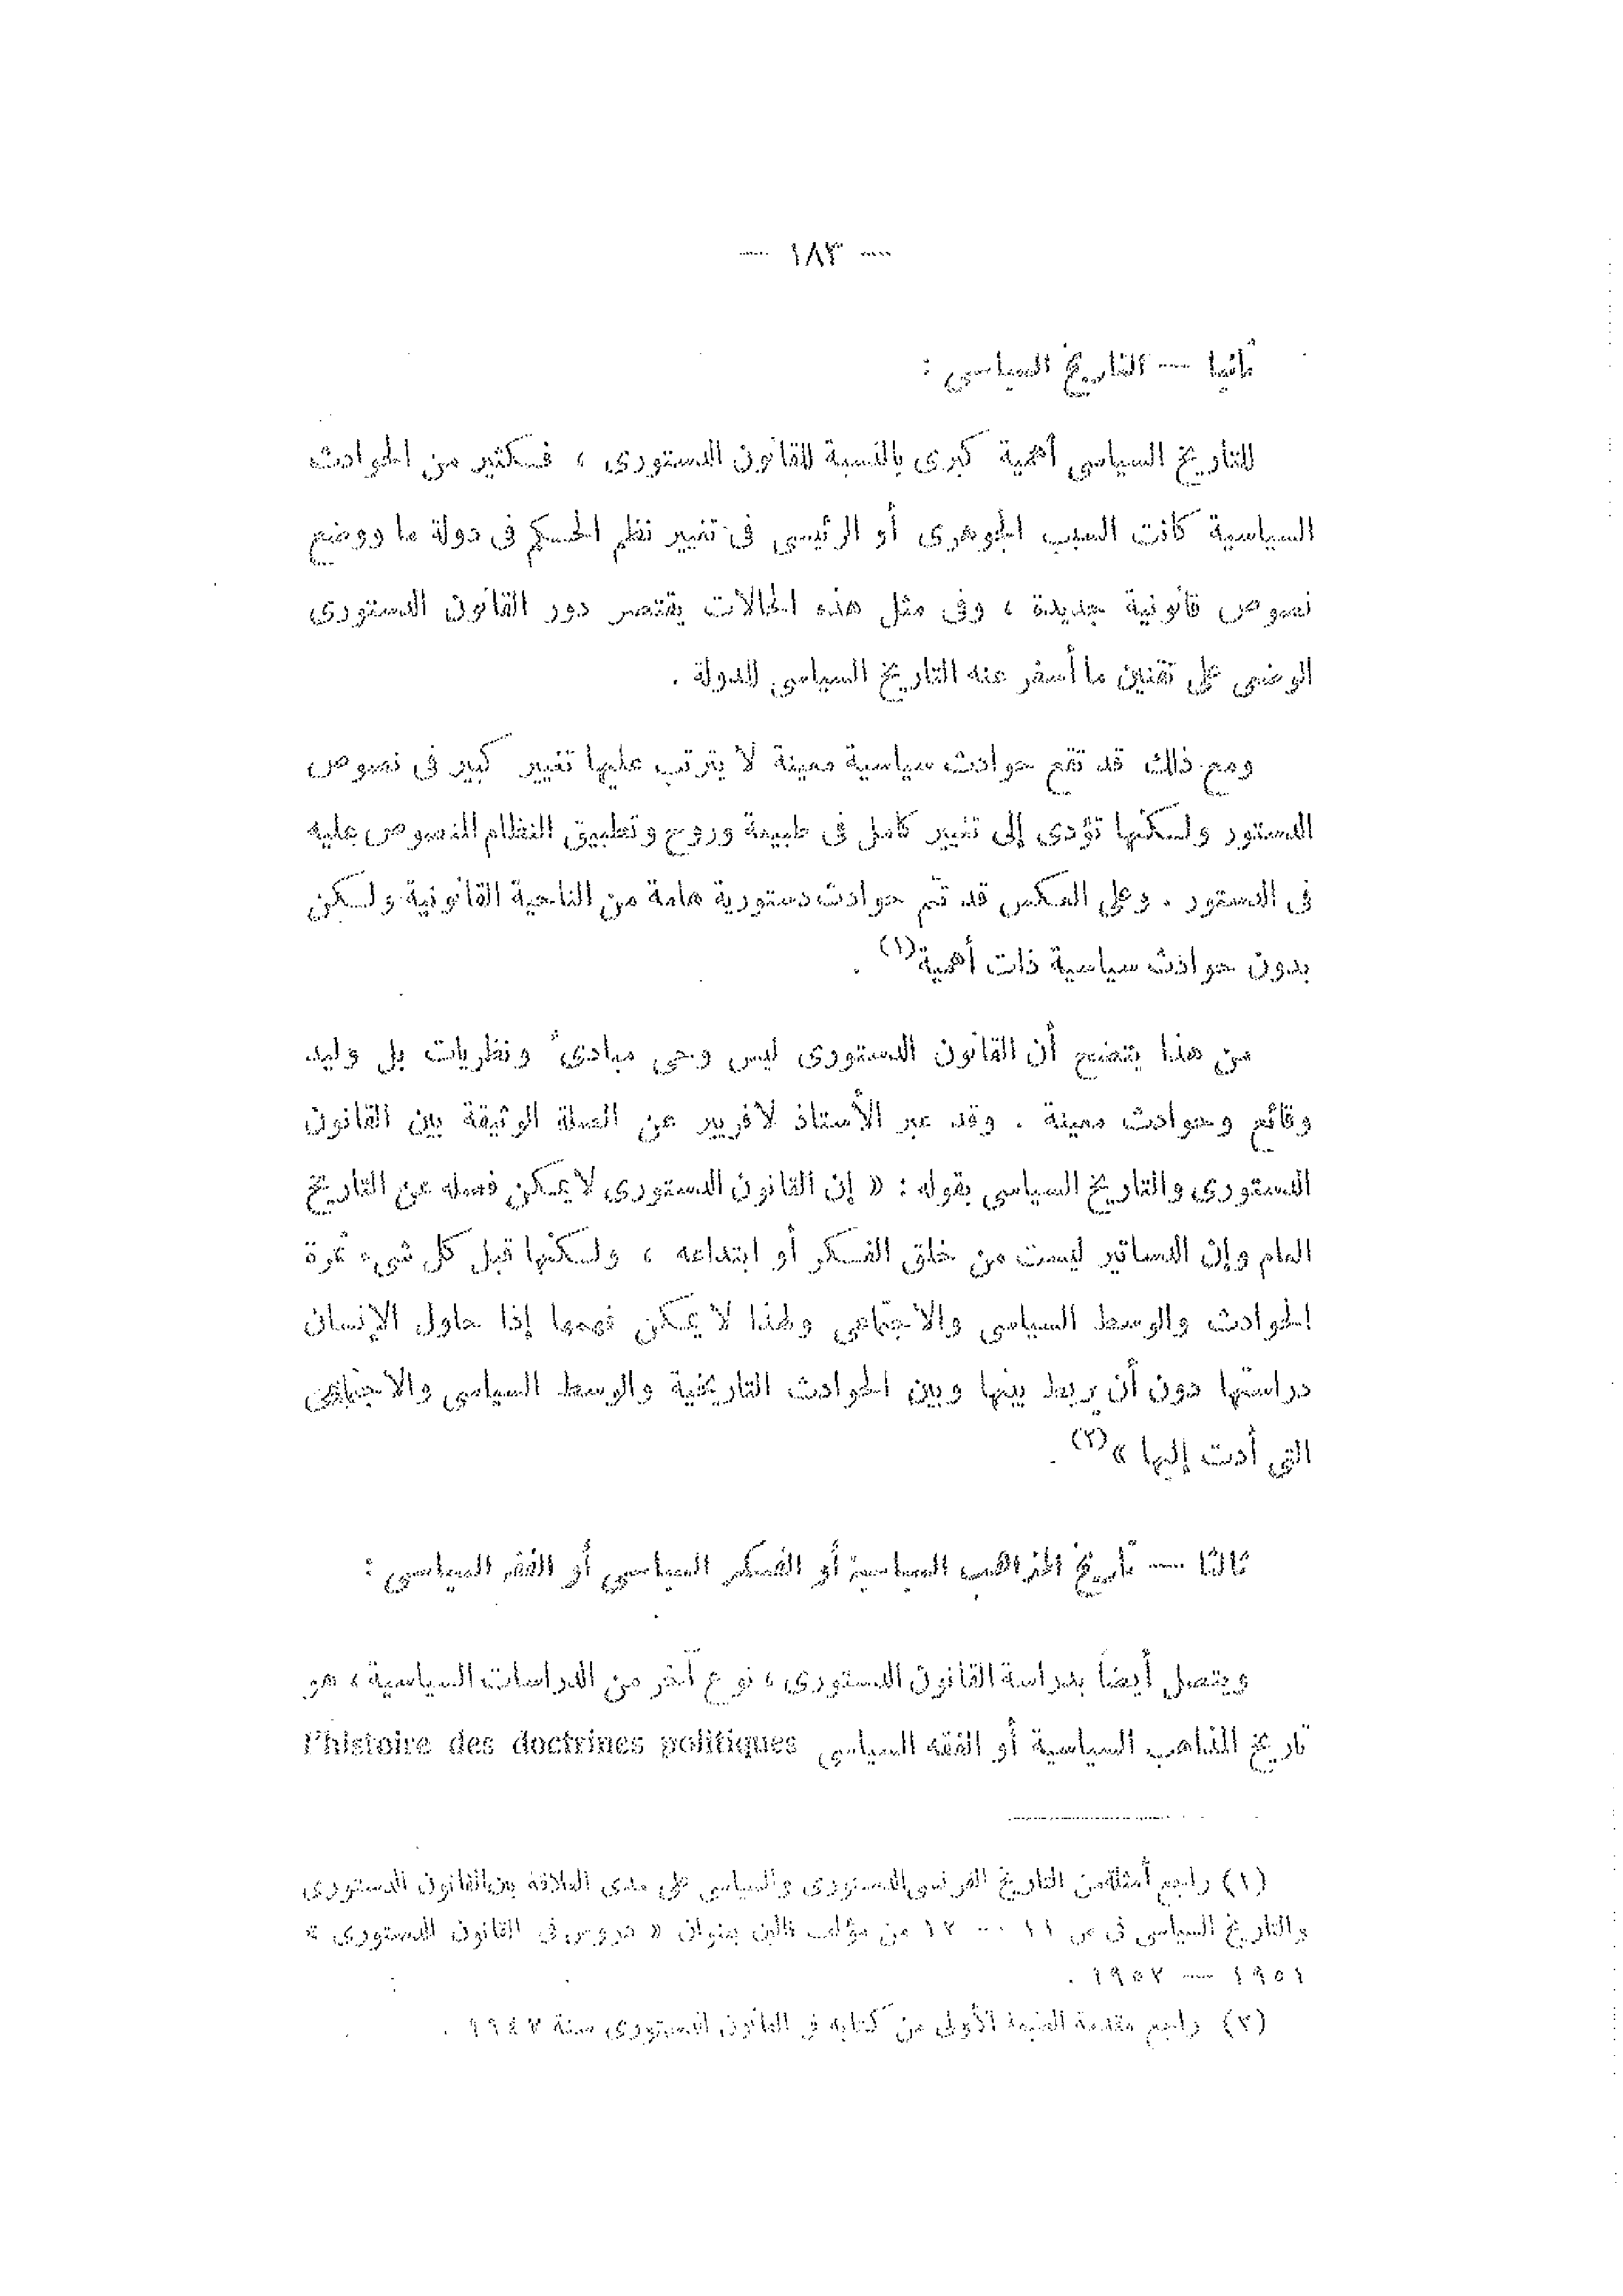 — ١٨٣ —
ثانيا — التاريخ السياسى :
للتاريخ السياسى أهمية كبرى بالنسبة للقانون الدستورى ، فكثير من الحوادث
السياسية كانت السبب الجوهرى أو الرئيسى فى تغيير نظم الحكم فى دولة ما ووضع
نصوص قانونية جديدة ، وفى مثل هذه الحالات يقتصر دور القانون الدستورى
الوضعى على تقنين ما أسفر عنه التاريخ السياسى للدولة .
ومع ذلك قد تقع حوادث سياسية معينة لا يترتب عليها تغيير كبير فى نصوص
الدستور ولكنها تؤدى إلى تغيير كامل فى طبيعة وروح وتطبيق النظام المنصوص عليه
فى الدستور . وعلى العكس قد تتم حوادث دستورية هامة من الناحية القانونية ولكن
بدون حوادث سياسية ذات أهمية(١) .
من هذا يتضح أن القانون الدستورى ليس وحى مبادئ ونظريات بل وليد
وقائع وحوادث معينة . وقد عبر الأستاذ لافريير عن الصلة الوثيقة بين القانون
الدستورى والتاريخ السياسى بقوله : « إن القانون الدستورى لا يمكن فصله عن التاريخ
العام وإن الدساتير ليست من خلق الفكر أو ابتداعه ، ولكنها قبل كل شىء ثمرة
الحوادث والوسط السياسى والاجتماعى ولهذا لا يمكن فهمها إذا حاول الإنسان
دراستها دون أن يربط بينها وبين الحوادث التاريخية والوسط السياسى والاجتماعى
التى أدت إليها »(٢) .
ثالثا — تاريخ المذاهب السياسية أو الفكر السياسى أو الفقه السياسى :
ويتصل أيضاً بدراسة القانون الدستورى ، نوع آخر من الدراسات السياسية ، هو
تاريخ المذاهب السياسية أو الفقه السياسى l'histoire des doctrines politiques
(١) راجع أمثلة من التاريخ الفرنسى الدستورى والسياسى على مدى العلاقة بين القانون الدستورى
والتاريخ السياسى فى ص ١١ — ١٢ من مؤلف بعنوان « دروس فى القانون الدستورى »
١٩٥١ — ١٩٥٢ .
(٢) راجع مقدمة الطبعة الأولى من كتابه فى القانون الدستورى سنة ١٩٤٧ .